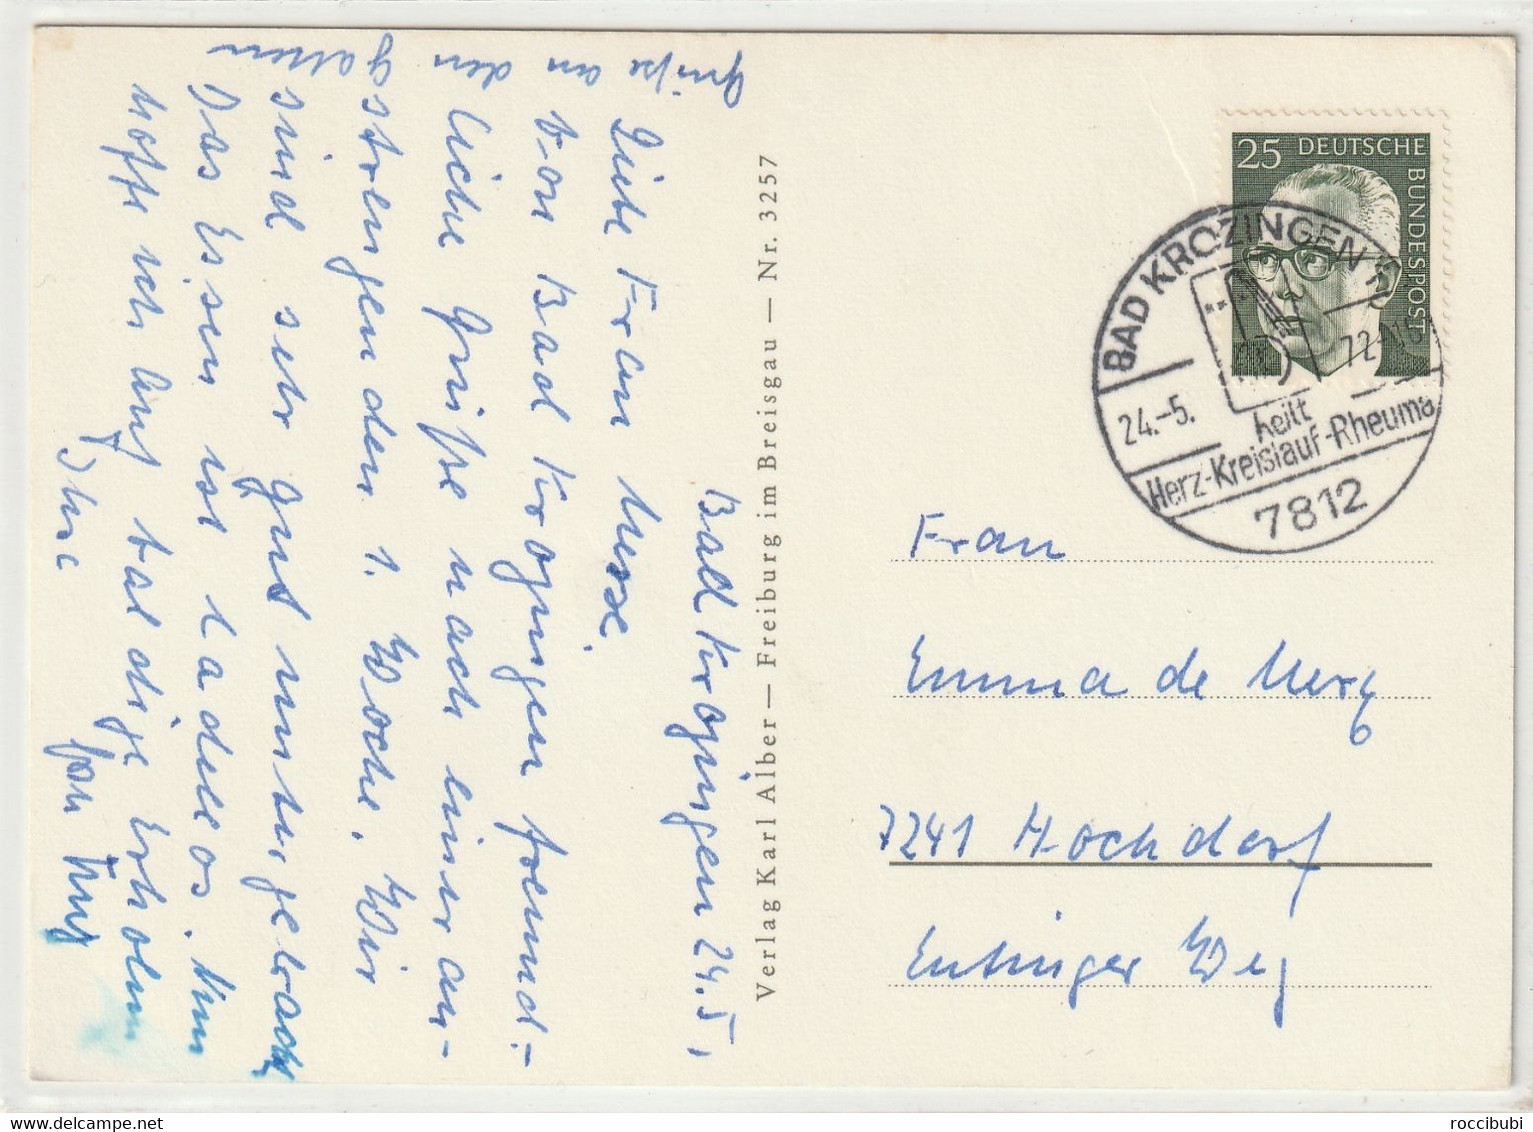 Bad Krozingen 24.5,
Liebe Frau Merx.
Von Bad Krozingen freund-
liche Grüße nach einer an-
strengenden 1. Woche. Wir
sind sehr gut untergebracht
Das Essen ist tadellos. Nun
hoffe ich auf baldige Erholung
Ihre
Grüße an den
Verlag Karl Alber — Freiburg im Breisgau — Nr. 3257
25 DEUTSCHE
BUNDESPOST
BAD KROZINGEN
24.-5. 72
heilt
Herz-Kreislauf-Rheuma
7812
Frau
Emma de Merx
7241 Hochdorf
Eutinger Weg
roccibubi